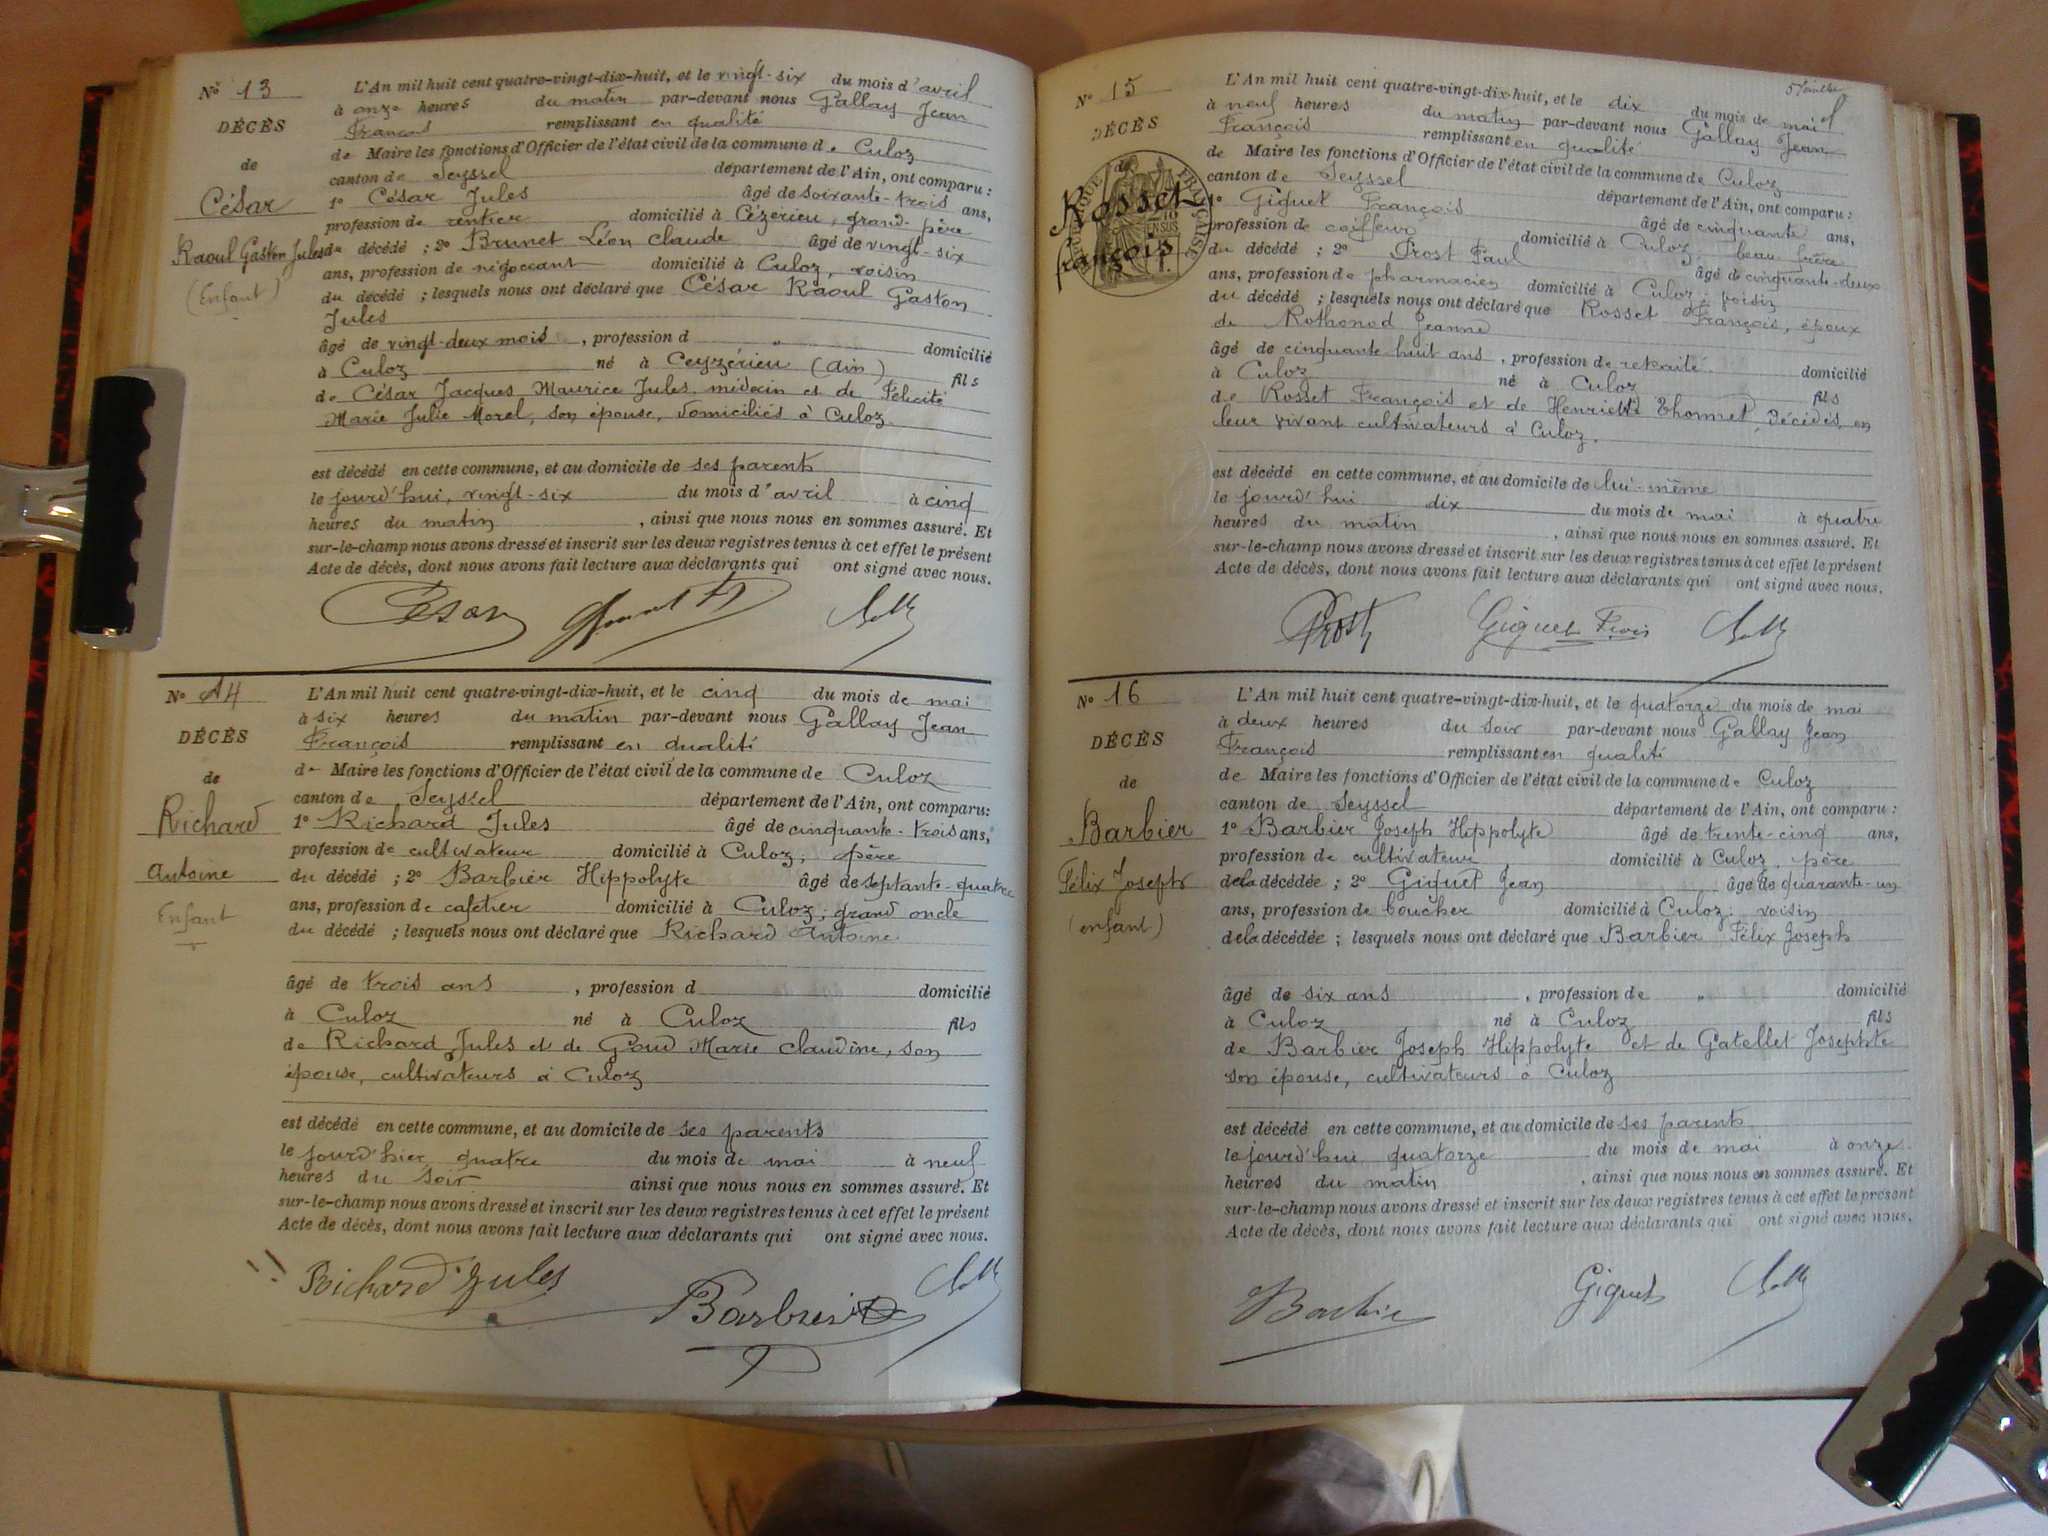 N° 13
DÉCÈS
de
César
Raoul Gaston Jules
(Enfant)
L'An mil huit cent quatre-vingt-dix-huit, et le vingt-six du mois d'avril
à onze heures du matin par-devant nous Gallay Jean
François remplissant en qualité
de Maire les fonctions d'Officier de l'état civil de la commune de Culoz
canton de Seyssel département de l'Ain, ont comparu :
1° César Jules âgé de soixante-trois ans,
profession de rentier domicilié à Cézerieu, grand-père
du décédé ; 2° Brunet Léon Claude âgé de vingt-six
ans, profession de négociant domicilié à Culoz, voisin
du décédé ; lesquels nous ont déclaré que César Raoul Gaston
Jules
âgé de vingt-deux mois, profession d " domicilié
à Culoz né à Ceyzérieu (Ain) fils
de César Jacques Maurice Jules, médecin et de Félicité
Marie Julie Morel, son épouse, domiciliés à Culoz.
est décédé en cette commune, et au domicile de ses parents
le jourd'hui, vingt-six du mois d'avril à cinq
heures du matin, ainsi que nous nous en sommes assuré. Et
sur-le-champ nous avons dressé et inscrit sur les deux registres tenus à cet effet le présent
Acte de décès, dont nous avons fait lecture aux déclarants qui ont signé avec nous.
César
N° 14
DÉCÈS
de
Richard
Antoine
Enfant
L'An mil huit cent quatre-vingt-dix-huit, et le cinq du mois de mai
à six heures du matin par-devant nous Gallay Jean
François remplissant en qualité
de Maire les fonctions d'Officier de l'état civil de la commune de Culoz
canton de Seyssel département de l'Ain, ont comparu :
1° Richard Jules âgé de cinquante-trois ans,
profession de cultivateur domicilié à Culoz, père
du décédé ; 2° Barbier Hippolyte âgé de septante-quatre
ans, profession de cafetier domicilié à Culoz, grand oncle
du décédé ; lesquels nous ont déclaré que Richard Antoine
âgé de trois ans, profession d domicilié
à Culoz né à Culoz fils
de Richard Jules et de Goud Marie Claudine, son
épouse, cultivateurs à Culoz
est décédé en cette commune, et au domicile de ses parents
le jourd'hier quatre du mois de mai à neuf
heures du soir ainsi que nous nous en sommes assuré. Et
sur-le-champ nous avons dressé et inscrit sur les deux registres tenus à cet effet le présent
Acte de décès, dont nous avons fait lecture aux déclarants qui ont signé avec nous.
Richard Jules
N° 15
DÉCÈS
de
Rosset
François
L'An mil huit cent quatre-vingt-dix-huit, et le dix du mois de mai
à neuf heures du matin par-devant nous Gallay Jean
François remplissant en qualité
de Maire les fonctions d'Officier de l'état civil de la commune de Culoz
canton de Seyssel département de l'Ain, ont comparu :
1° Giguet François âgé de cinquante ans,
profession de coiffeur domicilié à Culoz, beau frère
du décédé ; 2° Prost Paul âgé de cinquante-deux
ans, profession de pharmacien domicilié à Culoz, voisin
du décédé ; lesquels nous ont déclaré que Rosset François, époux
de Rothonod Jeanne
âgé de cinquante huit ans, profession de retraité domicilié
à Culoz né à Culoz fils
de Rosset François et de Henriette Thomet, Décédés, en
leur vivant cultivateurs à Culoz.
est décédé en cette commune, et au domicile de lui-même
le jourd'hui dix du mois de mai à quatre
heures du matin, ainsi que nous nous en sommes assuré. Et
sur-le-champ nous avons dressé et inscrit sur les deux registres tenus à cet effet le présent
Acte de décès, dont nous avons fait lecture aux déclarants qui ont signé avec nous.
Prost Giguet Fçois
N° 16
DÉCÈS
de
Barbier
Félix Joseph
(enfant)
L'An mil huit cent quatre-vingt-dix-huit, et le quatorze du mois de mai
à deux heures du soir par-devant nous Gallay Jean
François remplissant en qualité
de Maire les fonctions d'Officier de l'état civil de la commune de Culoz
canton de Seyssel département de l'Ain, ont comparu :
1° Barbier Joseph Hippolyte âgé de trente-cinq ans,
profession de cultivateur domicilié à Culoz, père
de la décédée ; 2° Giguet Jean âgé de quarante-un
ans, profession de boucher domicilié à Culoz, voisin
de la décédée ; lesquels nous ont déclaré que Barbier Félix Joseph
âgé de six ans, profession de " domicilié
à Culoz né à Culoz fils
de Barbier Joseph Hippolyte et de Gatellet Josephte
son épouse, cultivateurs à Culoz
est décédé en cette commune, et au domicile de ses parents
le jourd'hui quatorze du mois de mai à onze
heures du matin, ainsi que nous nous en sommes assuré. Et
sur-le-champ nous avons dressé et inscrit sur les deux registres tenus à cet effet le présent
Acte de décès, dont nous avons fait lecture aux déclarants qui ont signé avec nous.
Barbier Giguet